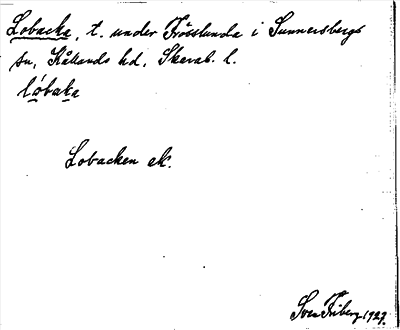 Lobacka, t. under Frösslunda i Sunnersbergs
sn, Kållands hd, Skarab. l.
lóbaka
Lobacken ek.
Sven Friberg 1927.